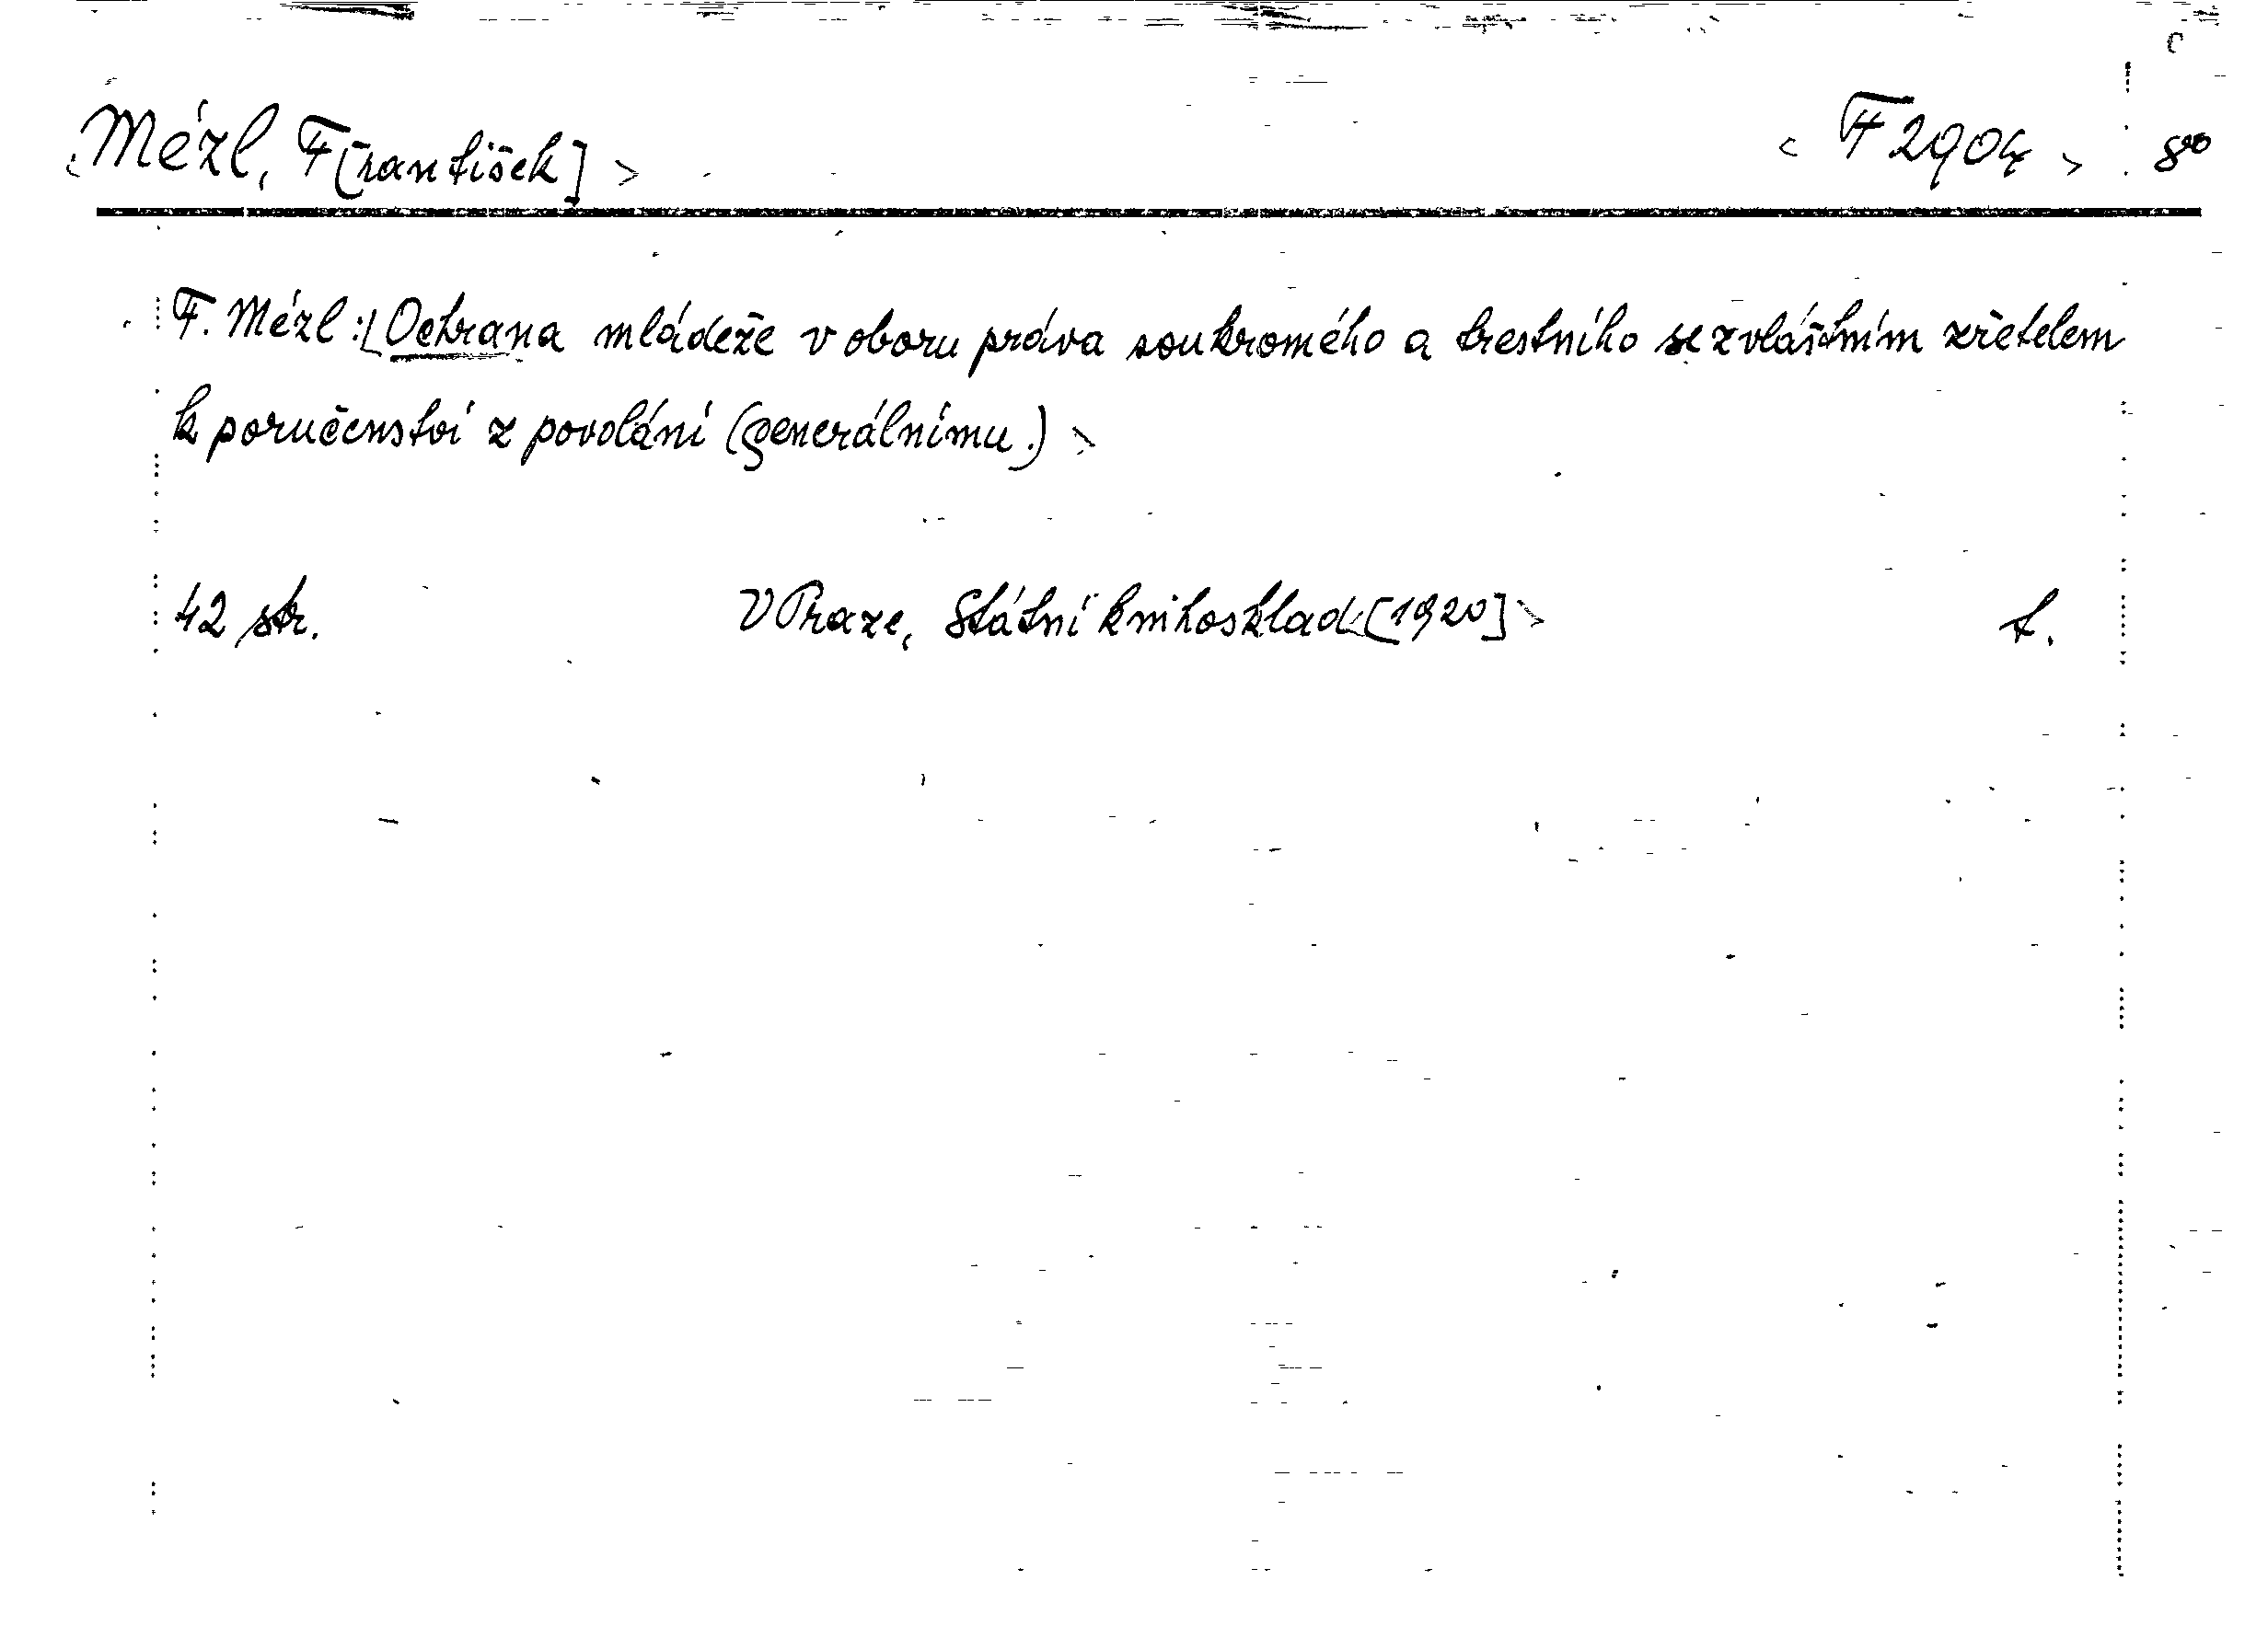 Mézl, F[rantišek] F 2904 8°
F. Mézl: Ochrana mládeže v oboru práva soukromého a trestního se zvláštním zřetelem
k poručenství z povolání (generálnímu.)
42 str. V Praze, Státní knihosklad [1920] t.